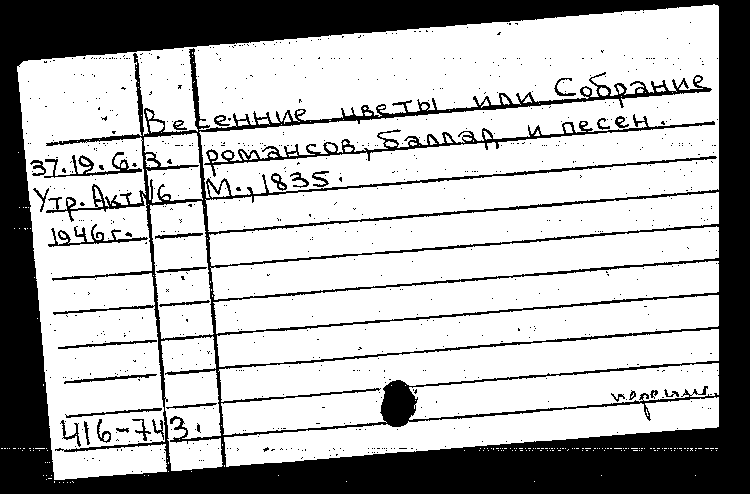 Весенние цветы или Собрание
37.19.6.3. романсов, баллад, и песен.
Утр. Акт №6 М., 1835.
1946г.
416-743.